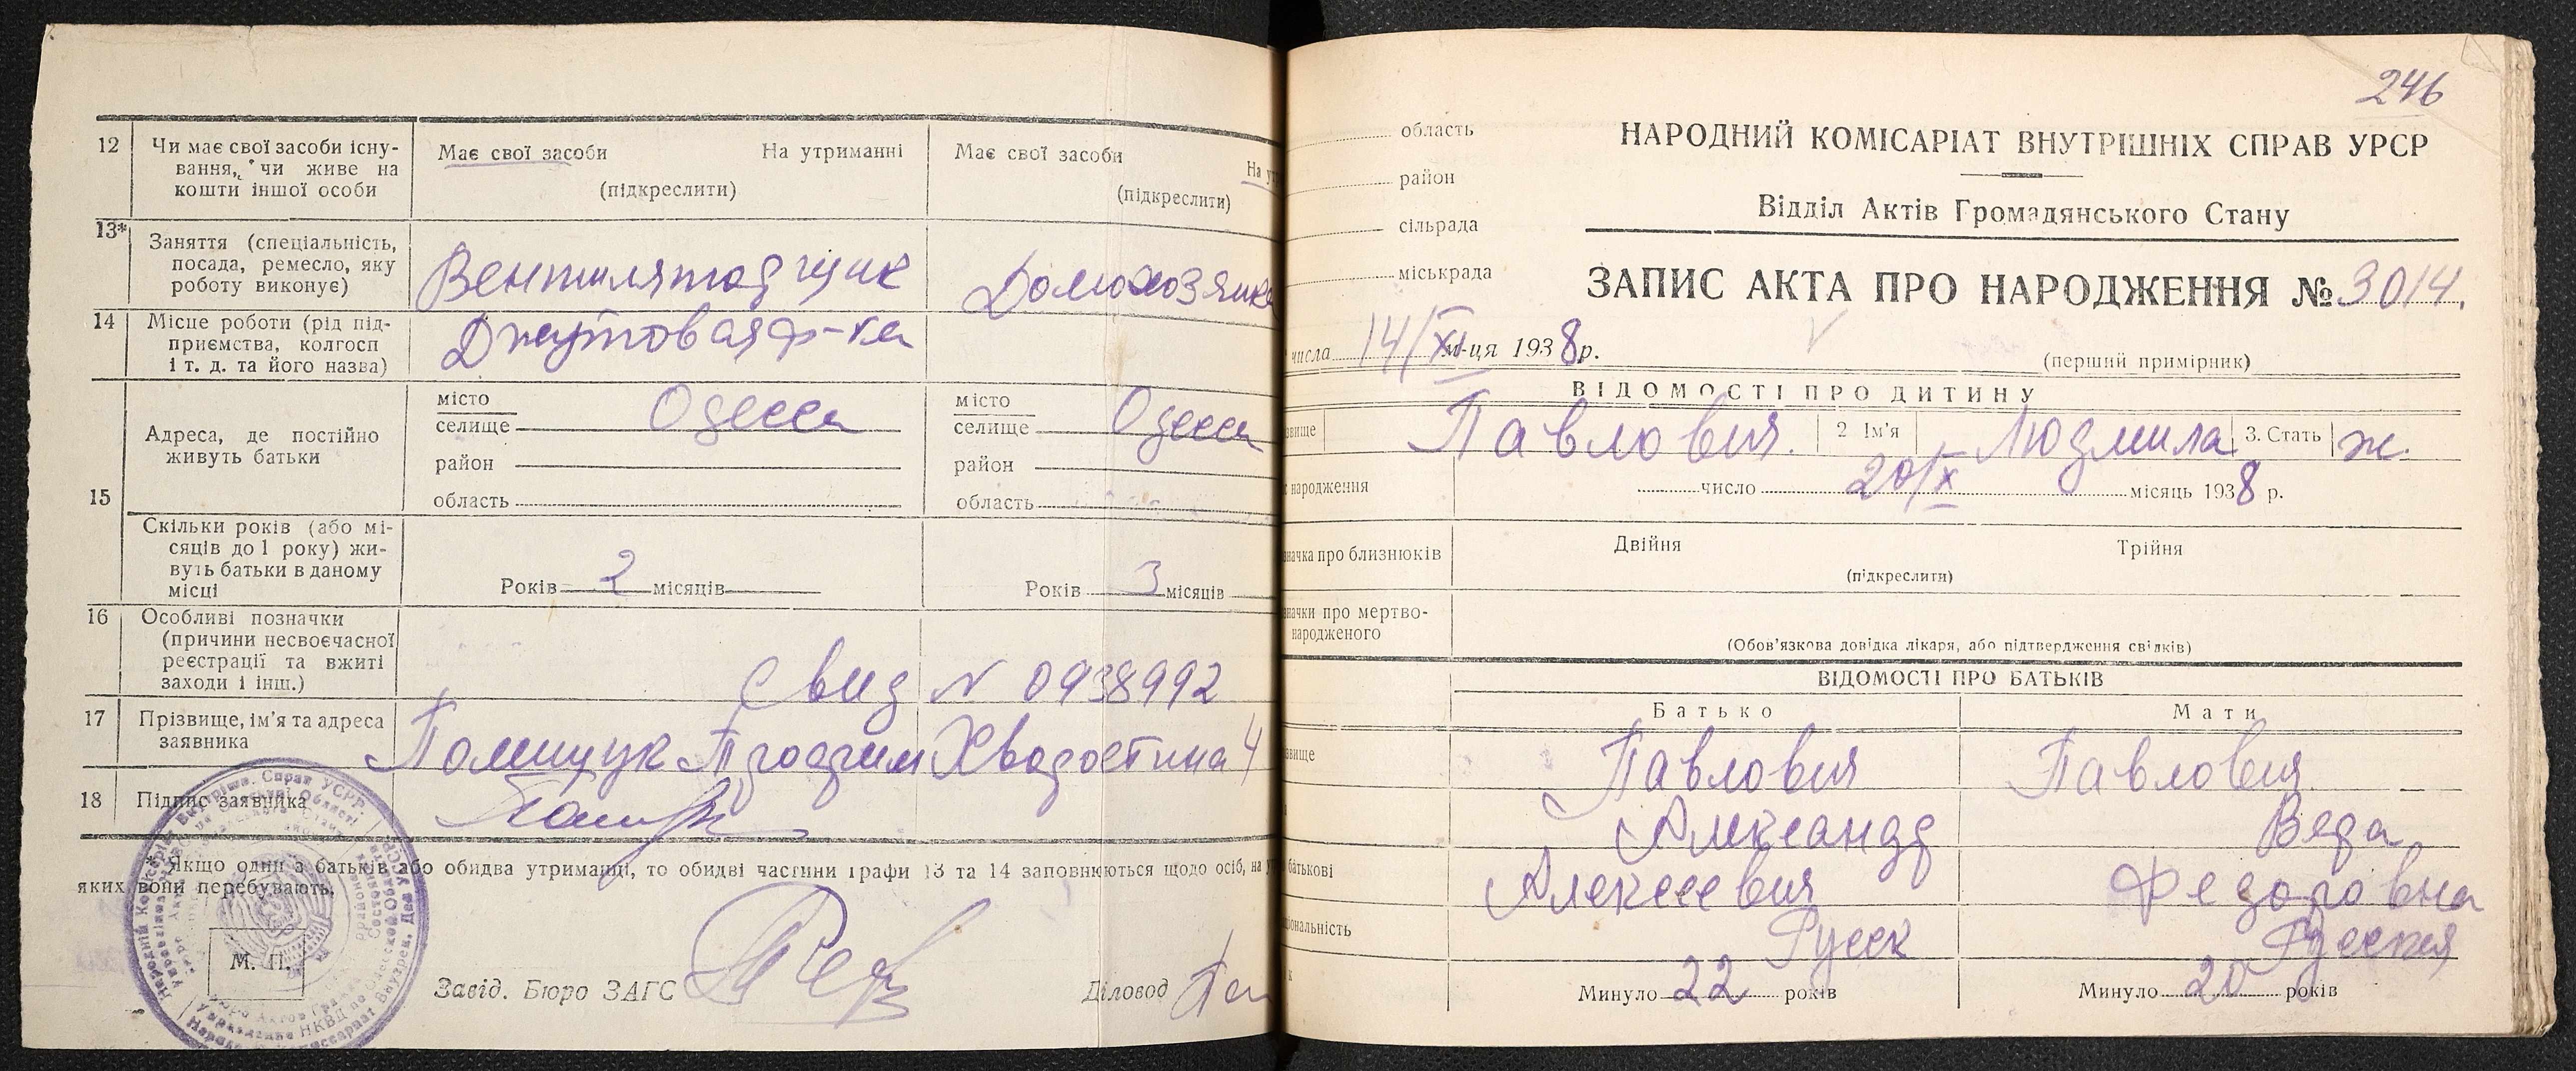 12 Чи має свої засоби існу-
вання, чи живе на
кошти іншої особи
Має свої засоби На утриманні
(підкреслити)
Має свої засоби На ут
(підкреслити)
13* Заняття (спеціальність,
посада, ремесло, яку
роботу виконує)
Вентиляторщик Домохозяйка
14 Місце роботи (рід під-
приємства, колгосп
і т. д. та його назва)
Джутовая ф-ка
15 Адреса, де постійно
живуть батьки
місто Одесса
селище
район
область
місто Одесса
селище
район
область
Скільки років (або мі-
сяців до 1 року) жи-
вуть батьки в даному
місці
Років 2 місяців
Років 3 місяців
16 Особливі позначки
(причини несвоєчасної
реєстрації та вжиті
заходи і інш.)
Свид N 0938992
17 Прізвище, ім'я та адреса
заявника
Полищук Хворостина 4
18 Підпис заявника
* Якщо один з батьків або обидва утриманці, то обидві частини графи 13 та 14 заповнюються щодо осіб, на у
яких вони перебувають.
М. П.
Завід. Бюро ЗАГС
Діловод
246
область
район
сільрада
міськрада
НАРОДНИЙ КОМІСАРІАТ ВНУТРІШНІХ СПРАВ УРСР
Відділ Актів Громадянського Стану
ЗАПИС АКТА ПРО НАРОДЖЕННЯ № 3014.
числа 14/XI м-ця 1938 р.
(перший примірник)
ВІДОМОСТІ ПРО ДИТИНУ
звище Павлович. 2 Ім'я Людмила 3. Стать ж.
народження число 20/X місяць 1938 р.
значка про близнюків Двійня Трійня
(підкреслити)
значки про мертво-
народженого
(Обов'язкова довідка лікаря, або підтвердження свідків)
ВІДОМОСТІ ПРО БАТЬКІВ
Батько Мати
звище Павлович Павлович
Александр Вера
батькові Алексеевич Федоровна
ціональність Русск Русская
к Минуло 22 років Минуло 20 років